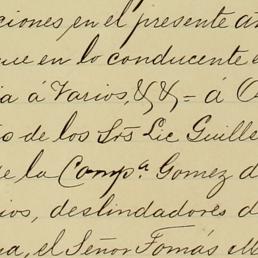 ciones en el presente añ
ue en lo conducente e
ia á Varios, &, &= á O
o de los Srs Lic Guille
de la Compª. Gomez d
ios, deslindadores d
a, el Señor Tomás M